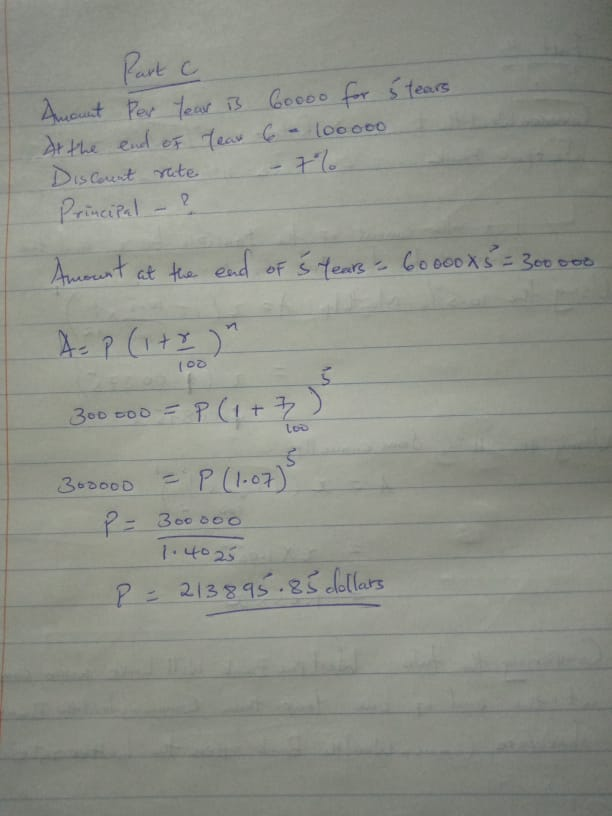 Part C
Amount Per Year is 60000 for 5 Years
At the end of Year 6 - 100000
Discount rate - 7%
Principal - ?
Amount at the end of 5 Years = 60000 x 5 = 300 000
A = P (1 + r/100)^n
300 000 = P (1 + 7/100)^5
300000 = P (1.07)^5
P = 300 000
1.4025
P = 213895.85 dollars